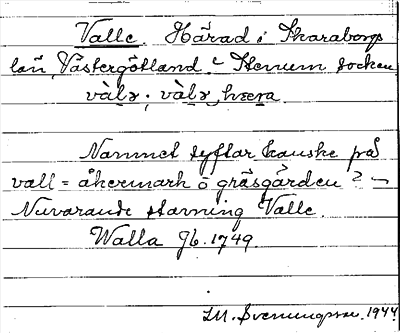 Valle. Härad i Skaraborgs
län, Västergötland - Stenum socken
vàlɘ; vàlɘ hæra
Namnet syftar kanske på
vall = åkermark o gräsgården? -
Nuvarande stavning Valle.
Walla Jb. 1749.
LM. Svenungsson. 1944